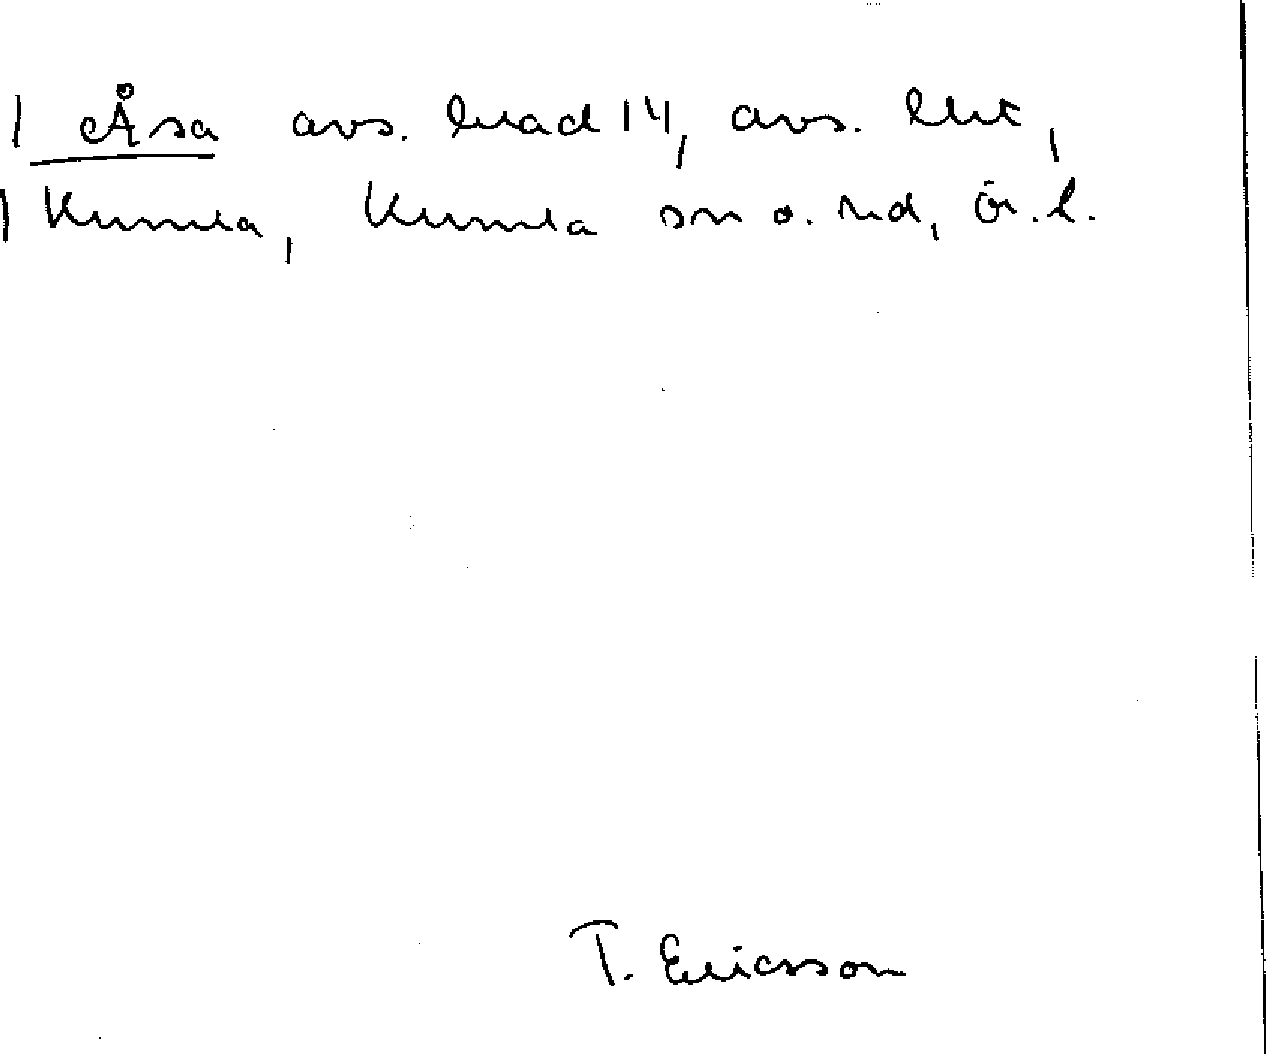 Åsa avs. kvad 14, avs. lht,
Kumla, Kumla sn o. hd, Ör. l.
T. Ericsson